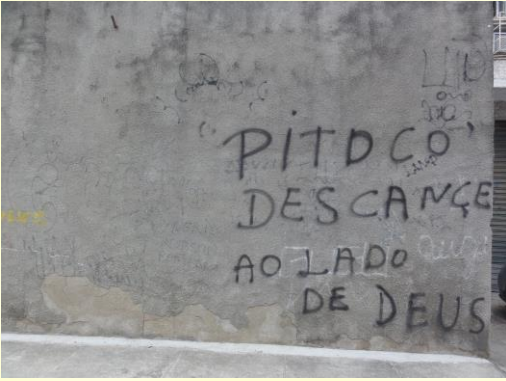 "PITOCO"
DESCANÇE
AO LADO
DE DEUS